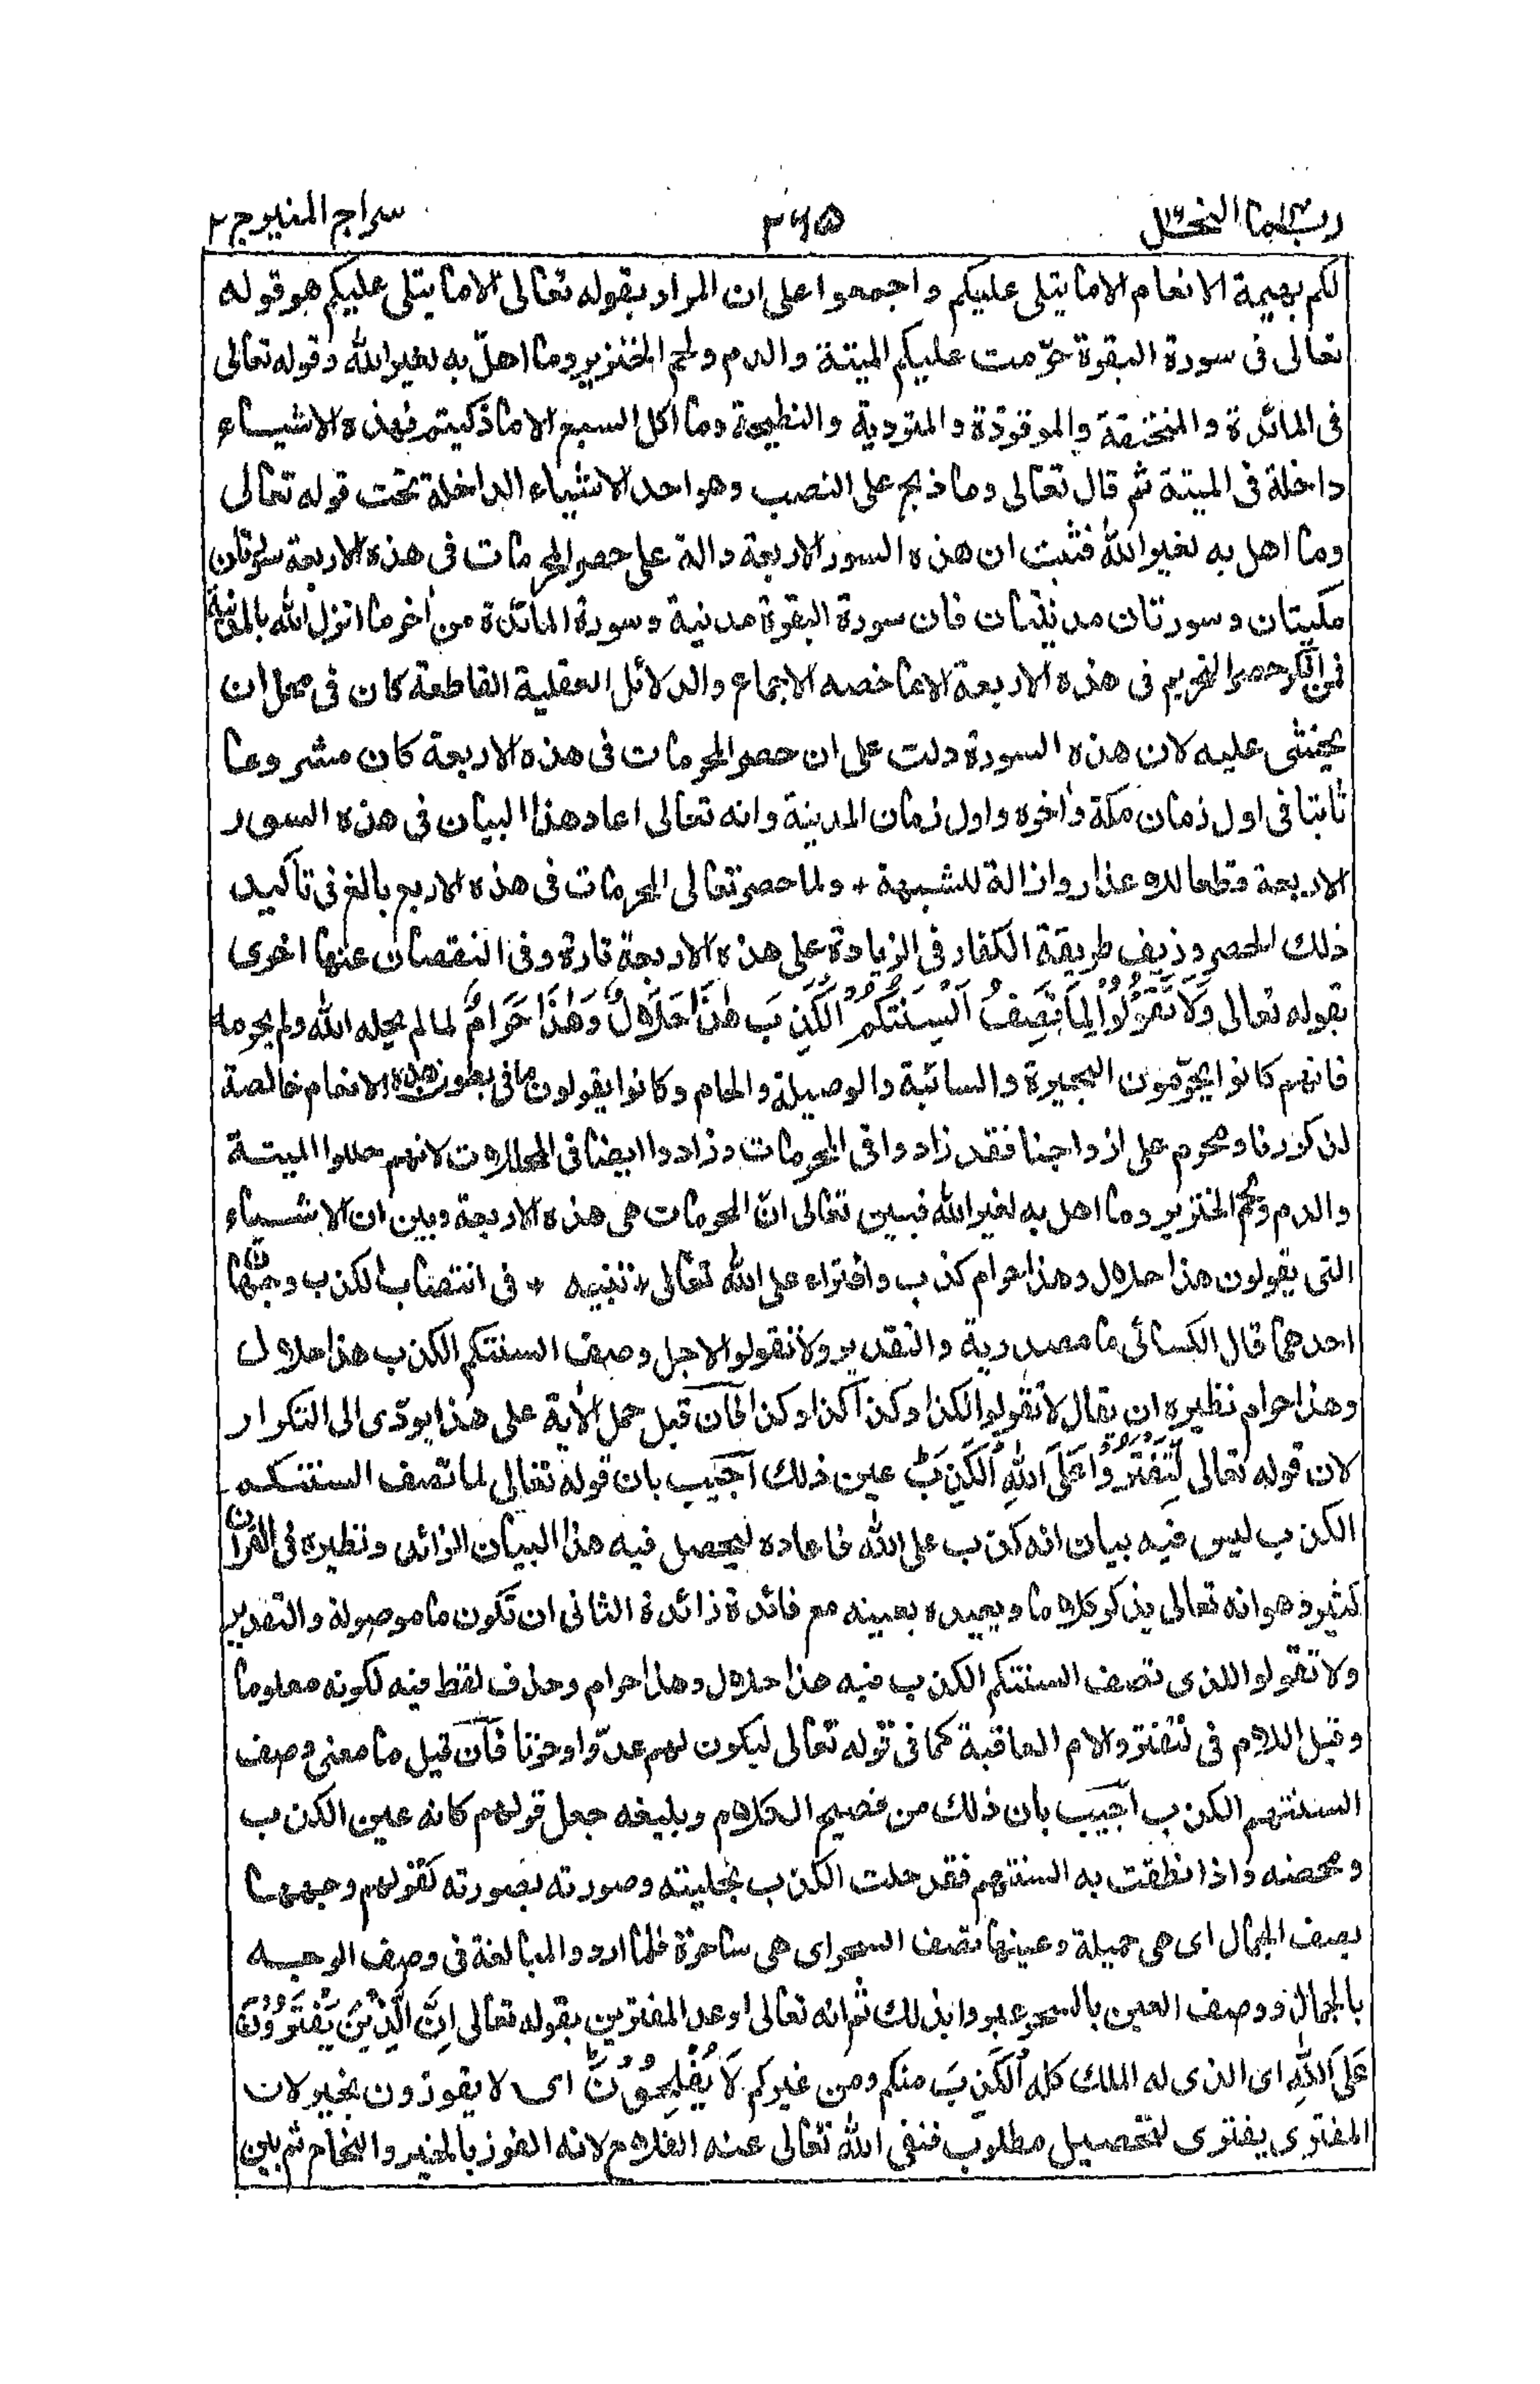 ربما ١٤ النحل ١٦ ٣٦٥ سراج المنير ج ٢
لكم بهيمة الانعام الا ما يتلى عليكم واجمعوا على ان المراد بقوله تعالى الا ما يتلى عليكم هو قوله
تعالى فى سورة البقرة حرّمت عليكم الميتة والدم ولحم الخنزير وما اهلّ به لغير الله وقوله تعالى
فى المائدة والمنخنقة والموقوذة والمتردية والنطيحة وما اكل السبع الا ما ذكيتم فهذه الاشياء
داخلة فى الميتة ثم قال تعالى وما ذبح على النصب وهو احد الاشياء الداخلة تحت قوله تعالى
وما اهل به لغير الله فثبت ان هذه السور الاربعة دالة على حصر المحرمات فى هذه الاربعة سورتان
مكيتان وسورتان مدنيتان فان سورة البقرة مدنية وسورة المائدة من اٰخر ما انزل الله بالمدينة
فمن انكر حصر التحريم فى هذه الاربعة الا ما خصه الاجماع والدلائل العقلية القاطعة كان فى محل ان
يخشى عليه لان هذه السورة دلت على ان حصر المحرمات فى هذه الاربعة كان مشروعا
ثابتا فى اول زمان مكة واٰخره واول زمان المدينة وانه تعالى اعاد هذا البيان فى هذه السور
الاربعة قطعا للاعذار وازالة للشبهة + ولما حصر تعالى المحرمات فى هذه الاربع بالغ فى تأكيد
ذلك الحصر وزيف طريقة الكفار فى الزيادة على هذه الاربعة تارة وفى النقصان عنها اخرى
بقوله تعالى وَلَا تَقُوْلُوْا لِمَا تَصِفُ اَلْسِنَتُكُمُ الْكَذِبَ هٰذَا حَلَالٌ وَّهٰذَا حَرَامٌ لما لم يحله الله ولم يحرمه
فانهم كانوا يحرّمون البحيرة والسائبة والوصيلة والحام وكانوا يقولون ما فى بطون هذه الانعام خالصة
لذكورنا ومحرم على ازواجنا فقد زادوا فى المحرمات وزادوا ايضا فى المحللات لانهم حللوا الميتة
والدم ولحم الخنزير وما اهل به لغير الله فبين تعالى انّ المحرمات هى هذه الاربعة وبين ان الاشياء
التى يقولون هذا حلال وهذا حرام كذب وافتراء على الله تعالى + تنبيه + فى انتصاب الكذب وجهان
احدهما قال الكسائى ما مصدرية والتقدير ولا تقولوا لاجل وصف السنتكم الكذب هذا حلال
وهذا حرام نظيره ان يقال لا تقولوا لكذا وكذا كذا وكذا فان قيل حمل الاٰية على هذا يودّى الى التكرار
لان قوله تعالى لِّتَفْتَرُوْا عَلَى اللّٰهِ الْكَذِبَ عين ذلك اجيب بان قوله تعالى لما تصف السنتكم
الكذب ليس فيه بيان انه كذب على الله فاعاده ليحصل فيه هذا البيان الزائد ونظيره فى القراٰن
كثير وهو انه تعالى يذكر كلاما ويعيده بعينه مع فائدة زائدة الثانى ان تكون ما موصولة والتقدير
ولا تقولوا للذى تصف السنتكم الكذب فيه هذا حلال وهذا حرام وحذف لفظ فيه لكونه معلوما
وقيل اللام فى لتفتروا لام العاقبة كما فى قوله تعالى ليكون لهم عدوّا وحزنا فان قيل ما معنى وصف
السنتهم الكذب اجيب بان ذلك من فصيح الكلام وبليغه جعل قولهم كانه عين الكذب
ومحضه واذا نطقت به السنتهم فقد حلت الكذب بحليته وصورته بصورته كقولهم وجهها
يصف الجمال اى هى جميلة وعينها تصف السحر اى هى ساحرة فلما ارادوا المبالغة فى وصف الوجه
بالجمال ووصف العين بالسحر عبروا بذلك ثم انه تعالى اوعد المفترين بقوله تعالى اِنَّ الَّذِيْنَ يَفْتَرُوْنَ
عَلَى اللّٰهِ اى الذى له الملك كله الْكَذِبَ منكم ومن غيركم لَا يُفْلِحُوْنَ اى لا يفوزون بخير لان
المفترى يفترى لتحصيل مطلوب فنفى الله تعالى عنه الفلاح لانه الفوز بالخير والنجاح ثم بين